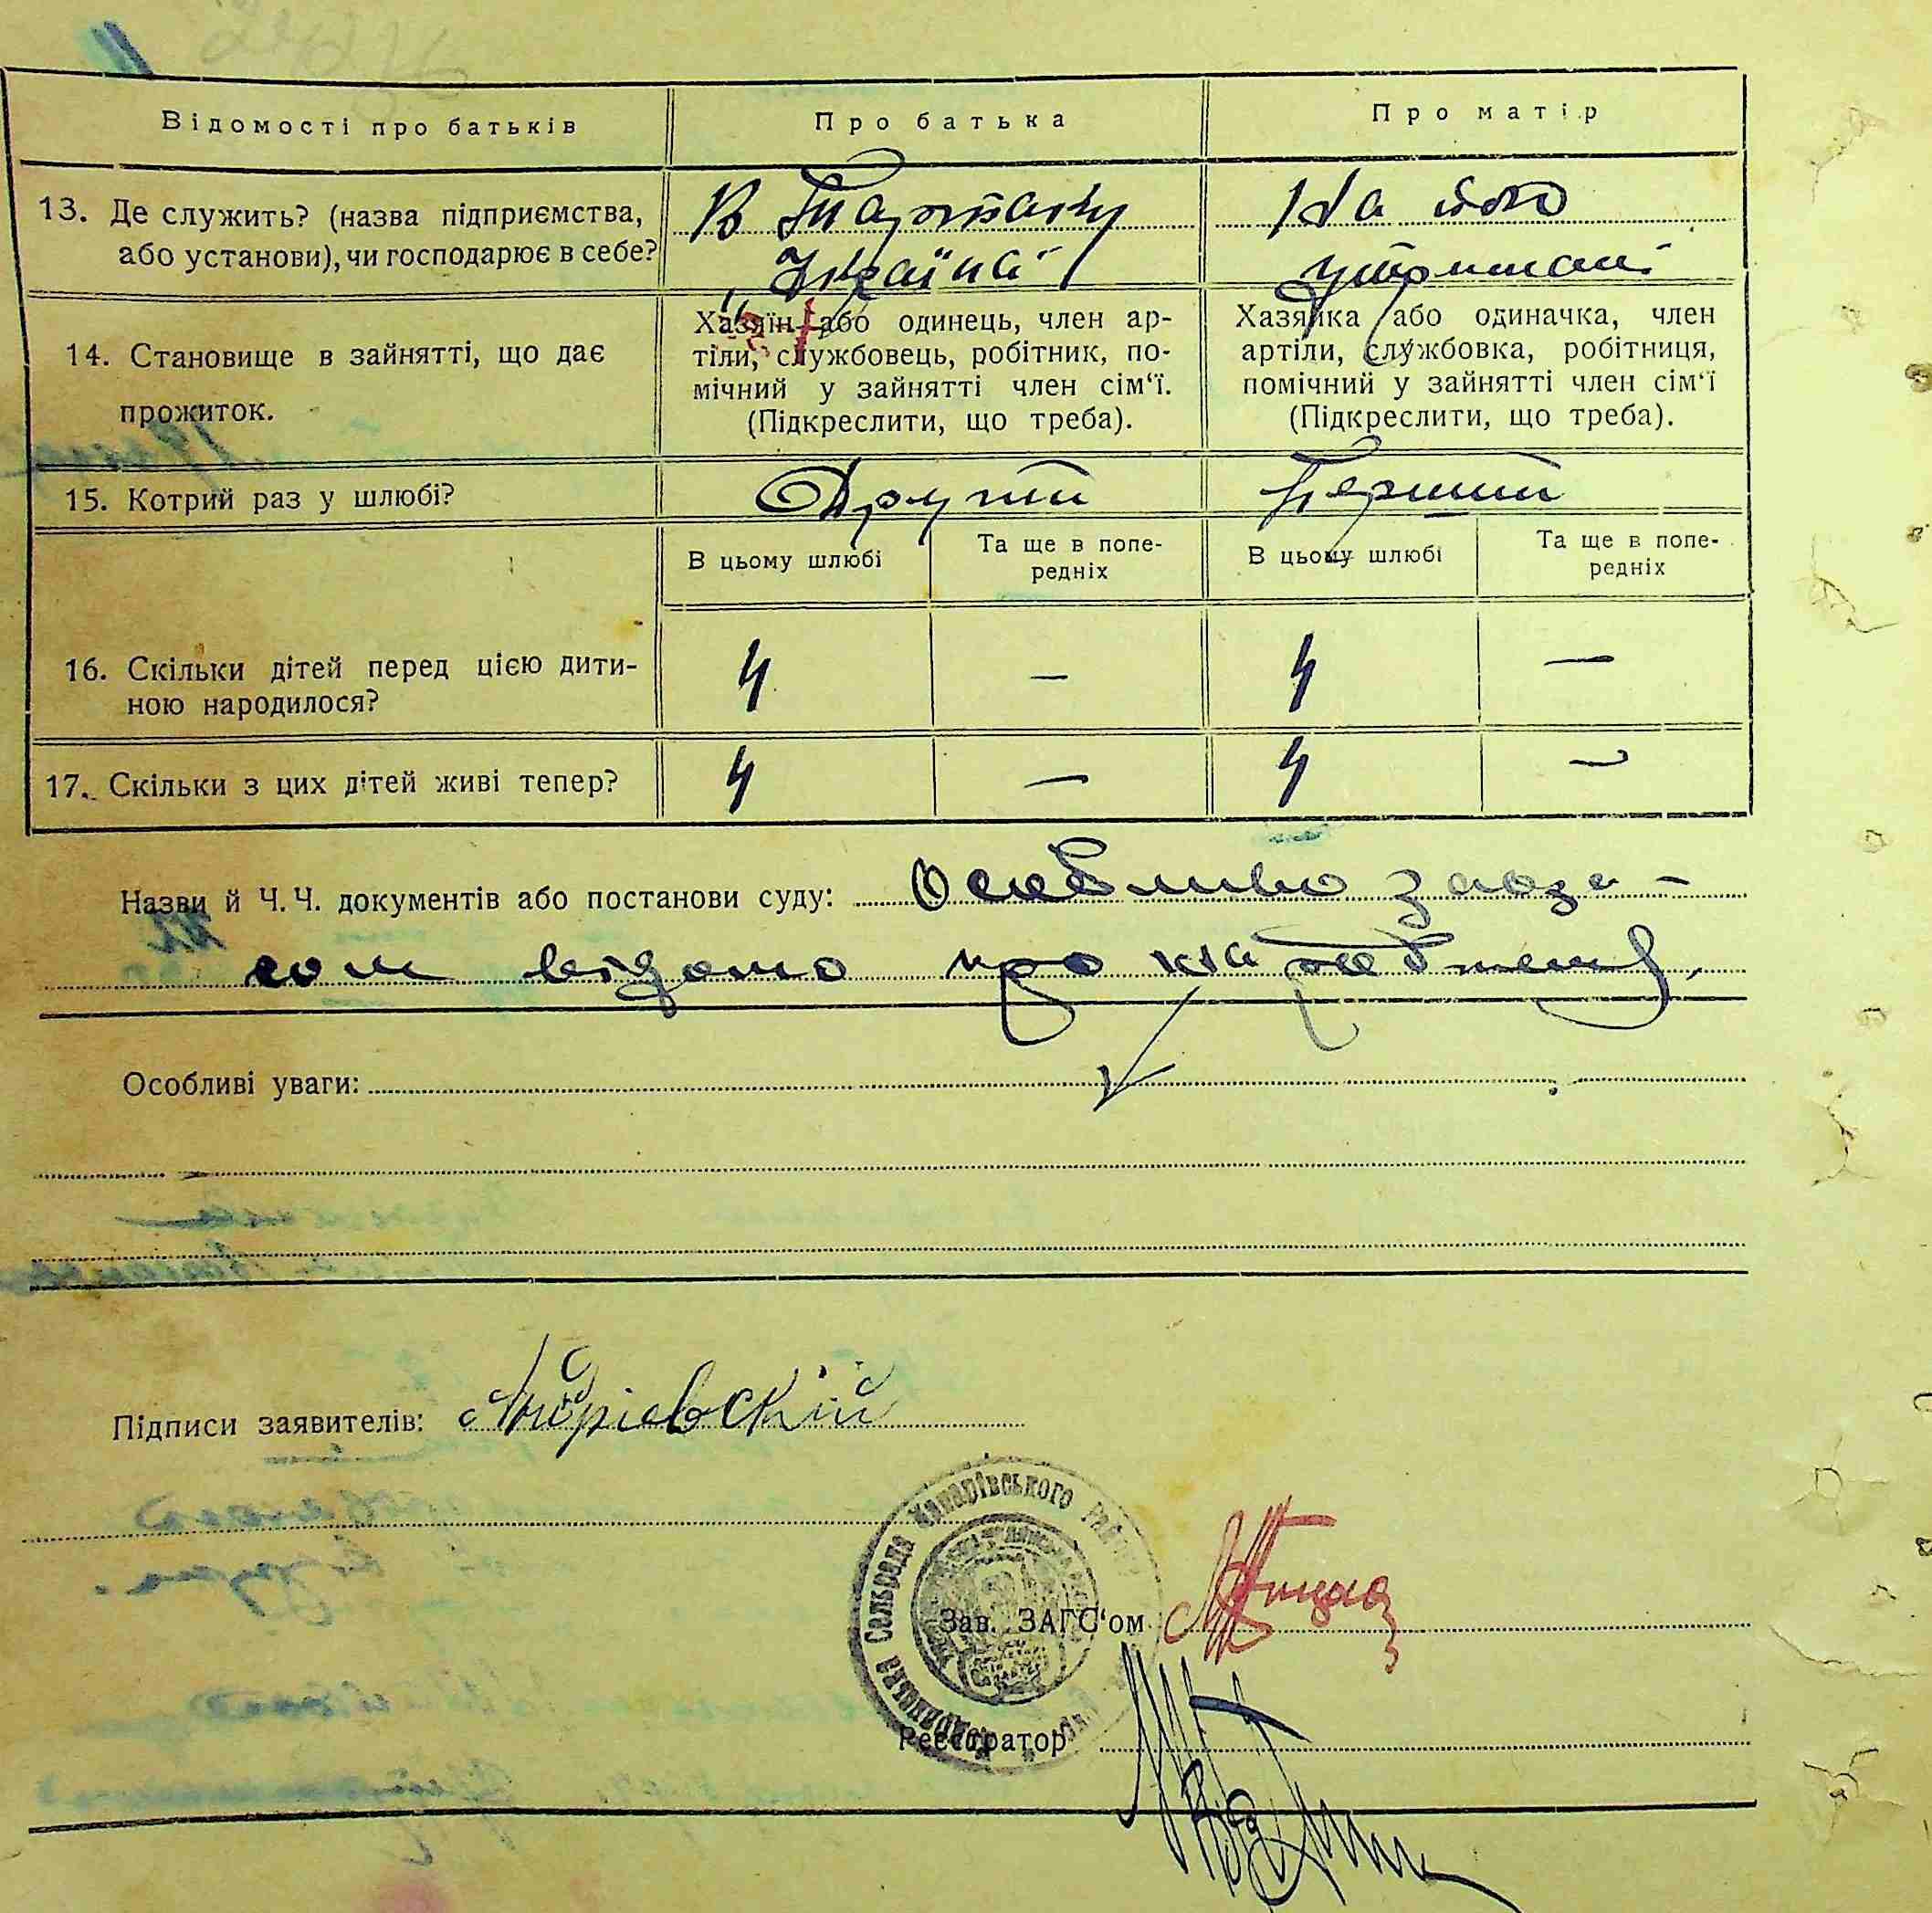 Відомості про батьків
Про батька
Про матір
13. Де служить? (назва підприємства,
або установи), чи господарює в себе?
В
"Україна"
На його
утриманні
14. Становище в зайнятті, що дає
прожиток.
Хазяїн або одинець, член ар-
тіли, службовець, робітник, по-
мічний у зайнятті член сім‘ї.
(Підкреслити, що треба).
Хазяйка або одиначка, член
артіли, службовка, робітниця,
помічний у зайнятті член сім‘ї
(Підкреслити, що треба).
15. Котрий раз у шлюбі?
Другий
Перший
В цьому шлюбі
Та ще в попе-
редніх
В цьому шлюбі
Та ще в попе-
редніх
16. Скільки дітей перед цією дити-
ною народилося?
4
—
4
—
17. Скільки з цих дітей живі тепер?
4
—
4
—
Назви й Ч. Ч. документів або постанови суду: Особливо
відомо про
Особливі уваги:
Підписи заявителів: Андрієвскій
Сельрада Макарівського Району
Зав. ЗАГС‘ом
Реєстратор